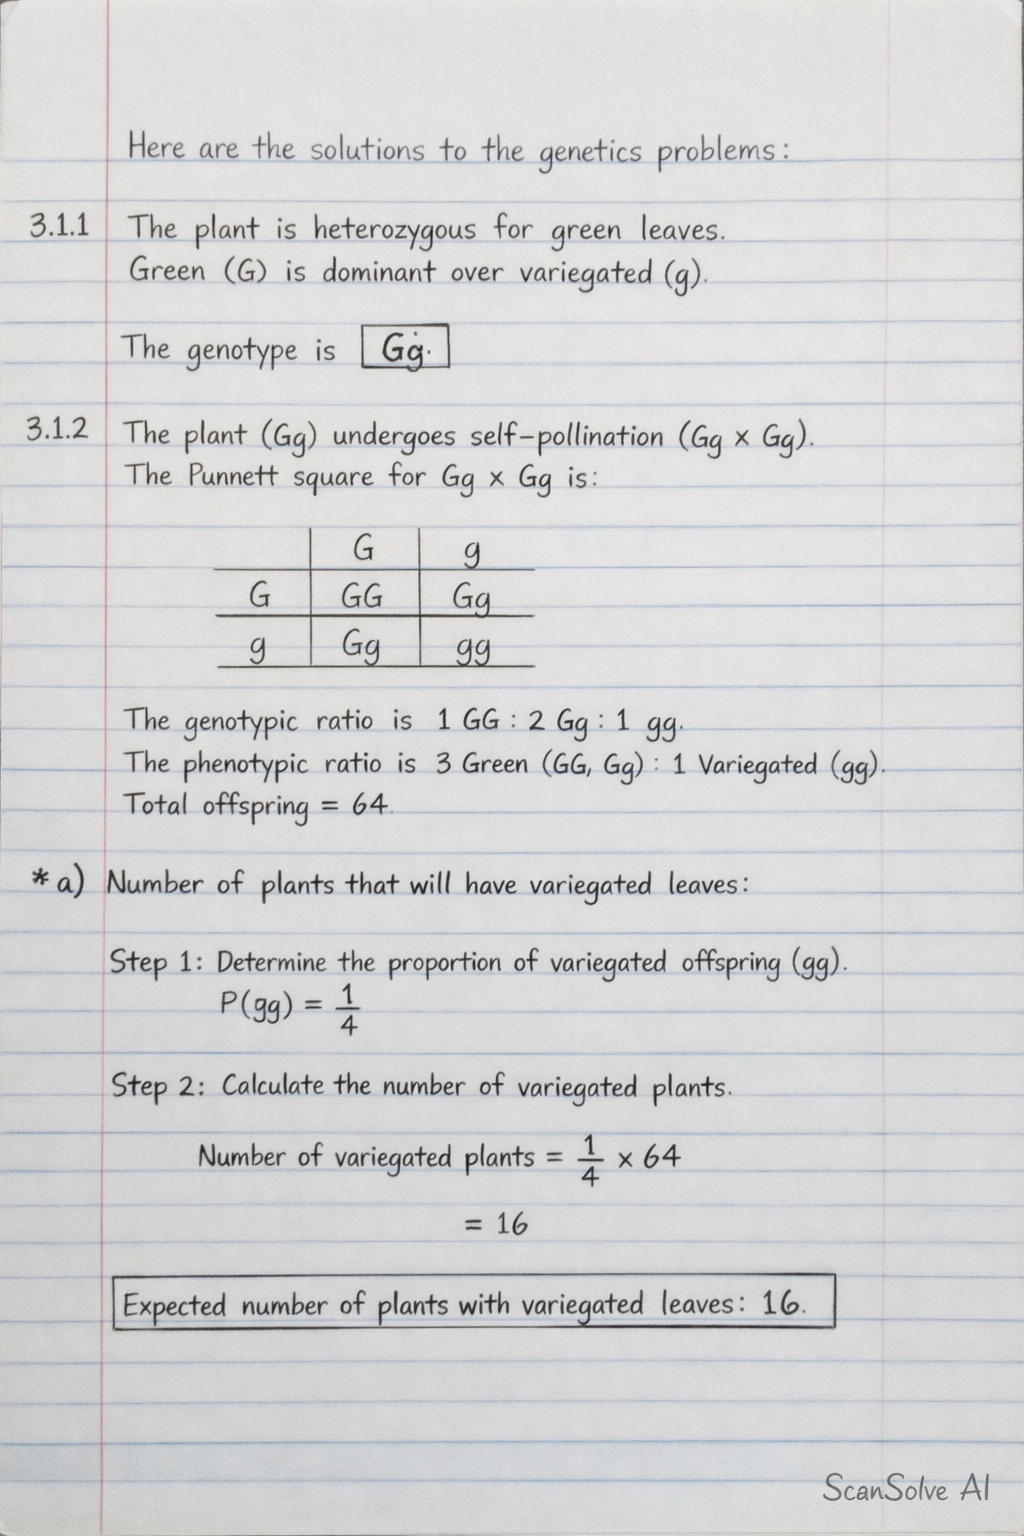 Here are the solutions to the genetics problems:
3.1.1 The plant is heterozygous for green leaves.
Green (G) is dominant over variegated (g).
The genotype is Gg.
3.1.2 The plant (Gg) undergoes self-pollination (Gg x Gg).
The Punnett square for Gg x Gg is:
G g
G GG Gg
g Gg gg
The genotypic ratio is 1 GG : 2 Gg : 1 gg.
The phenotypic ratio is 3 Green (GG, Gg) : 1 Variegated (gg).
Total offspring = 64.
* a) Number of plants that will have variegated leaves:
Step 1: Determine the proportion of variegated offspring (gg).
P(gg) = 1/4
Step 2: Calculate the number of variegated plants.
Number of variegated plants = 1/4 x 64
= 16
Expected number of plants with variegated leaves: 16.
ScanSolve AI